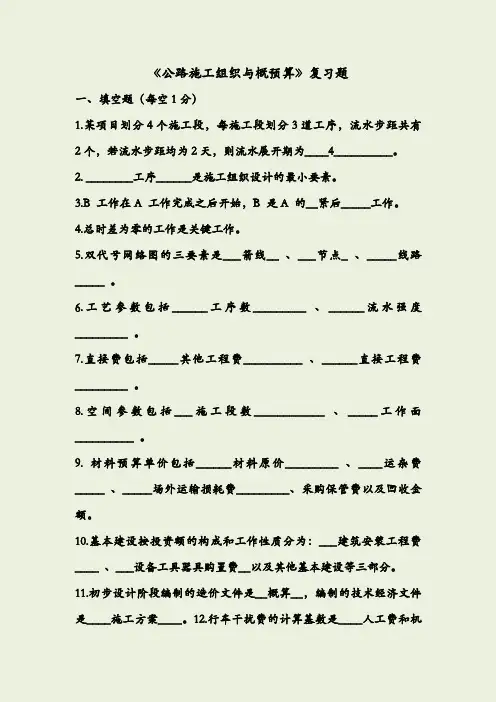 《公路施工组织与概预算》复习题
一、填空题（每空1分）
1.某项目划分4个施工段，每施工段划分3道工序，流水步距共有
2个，若流水步距均为2天，则流水展开期为____4__________。
2. ________工序______是施工组织设计的最小要素。
3.B 工作在A 工作完成之后开始，B 是A 的__紧后_____工作。
4.总时差为零的工作是关键工作。
5.双代号网络图的三要素是___箭线__ 、___节点_ 、_____线路
_____ 。
6.工艺参数包括______工序数_________ 、______流水强度
_________ 。
7.直接费包括_____其他工程费__________ 、______直接工程费
_________ 。
8.空间参数包括___施工段数____________ 、_____工作面
__________ 。
9. 材料预算单价包括______材料原价_________ 、____运杂费
_____ 、_____场外运输损耗费_________、采购保管费以及凹收金
额。
10.基本建设按投资额的构成和工作性质分为：___建筑安装工程费
____ 、___设备工具器具购置费__以及其他基本建设等三部分。
11.初步设计阶段编制的造价文件是__概算__，编制的技术经济文件
是____施工方案____。12.行车干扰费的计算基数是____人工费和机